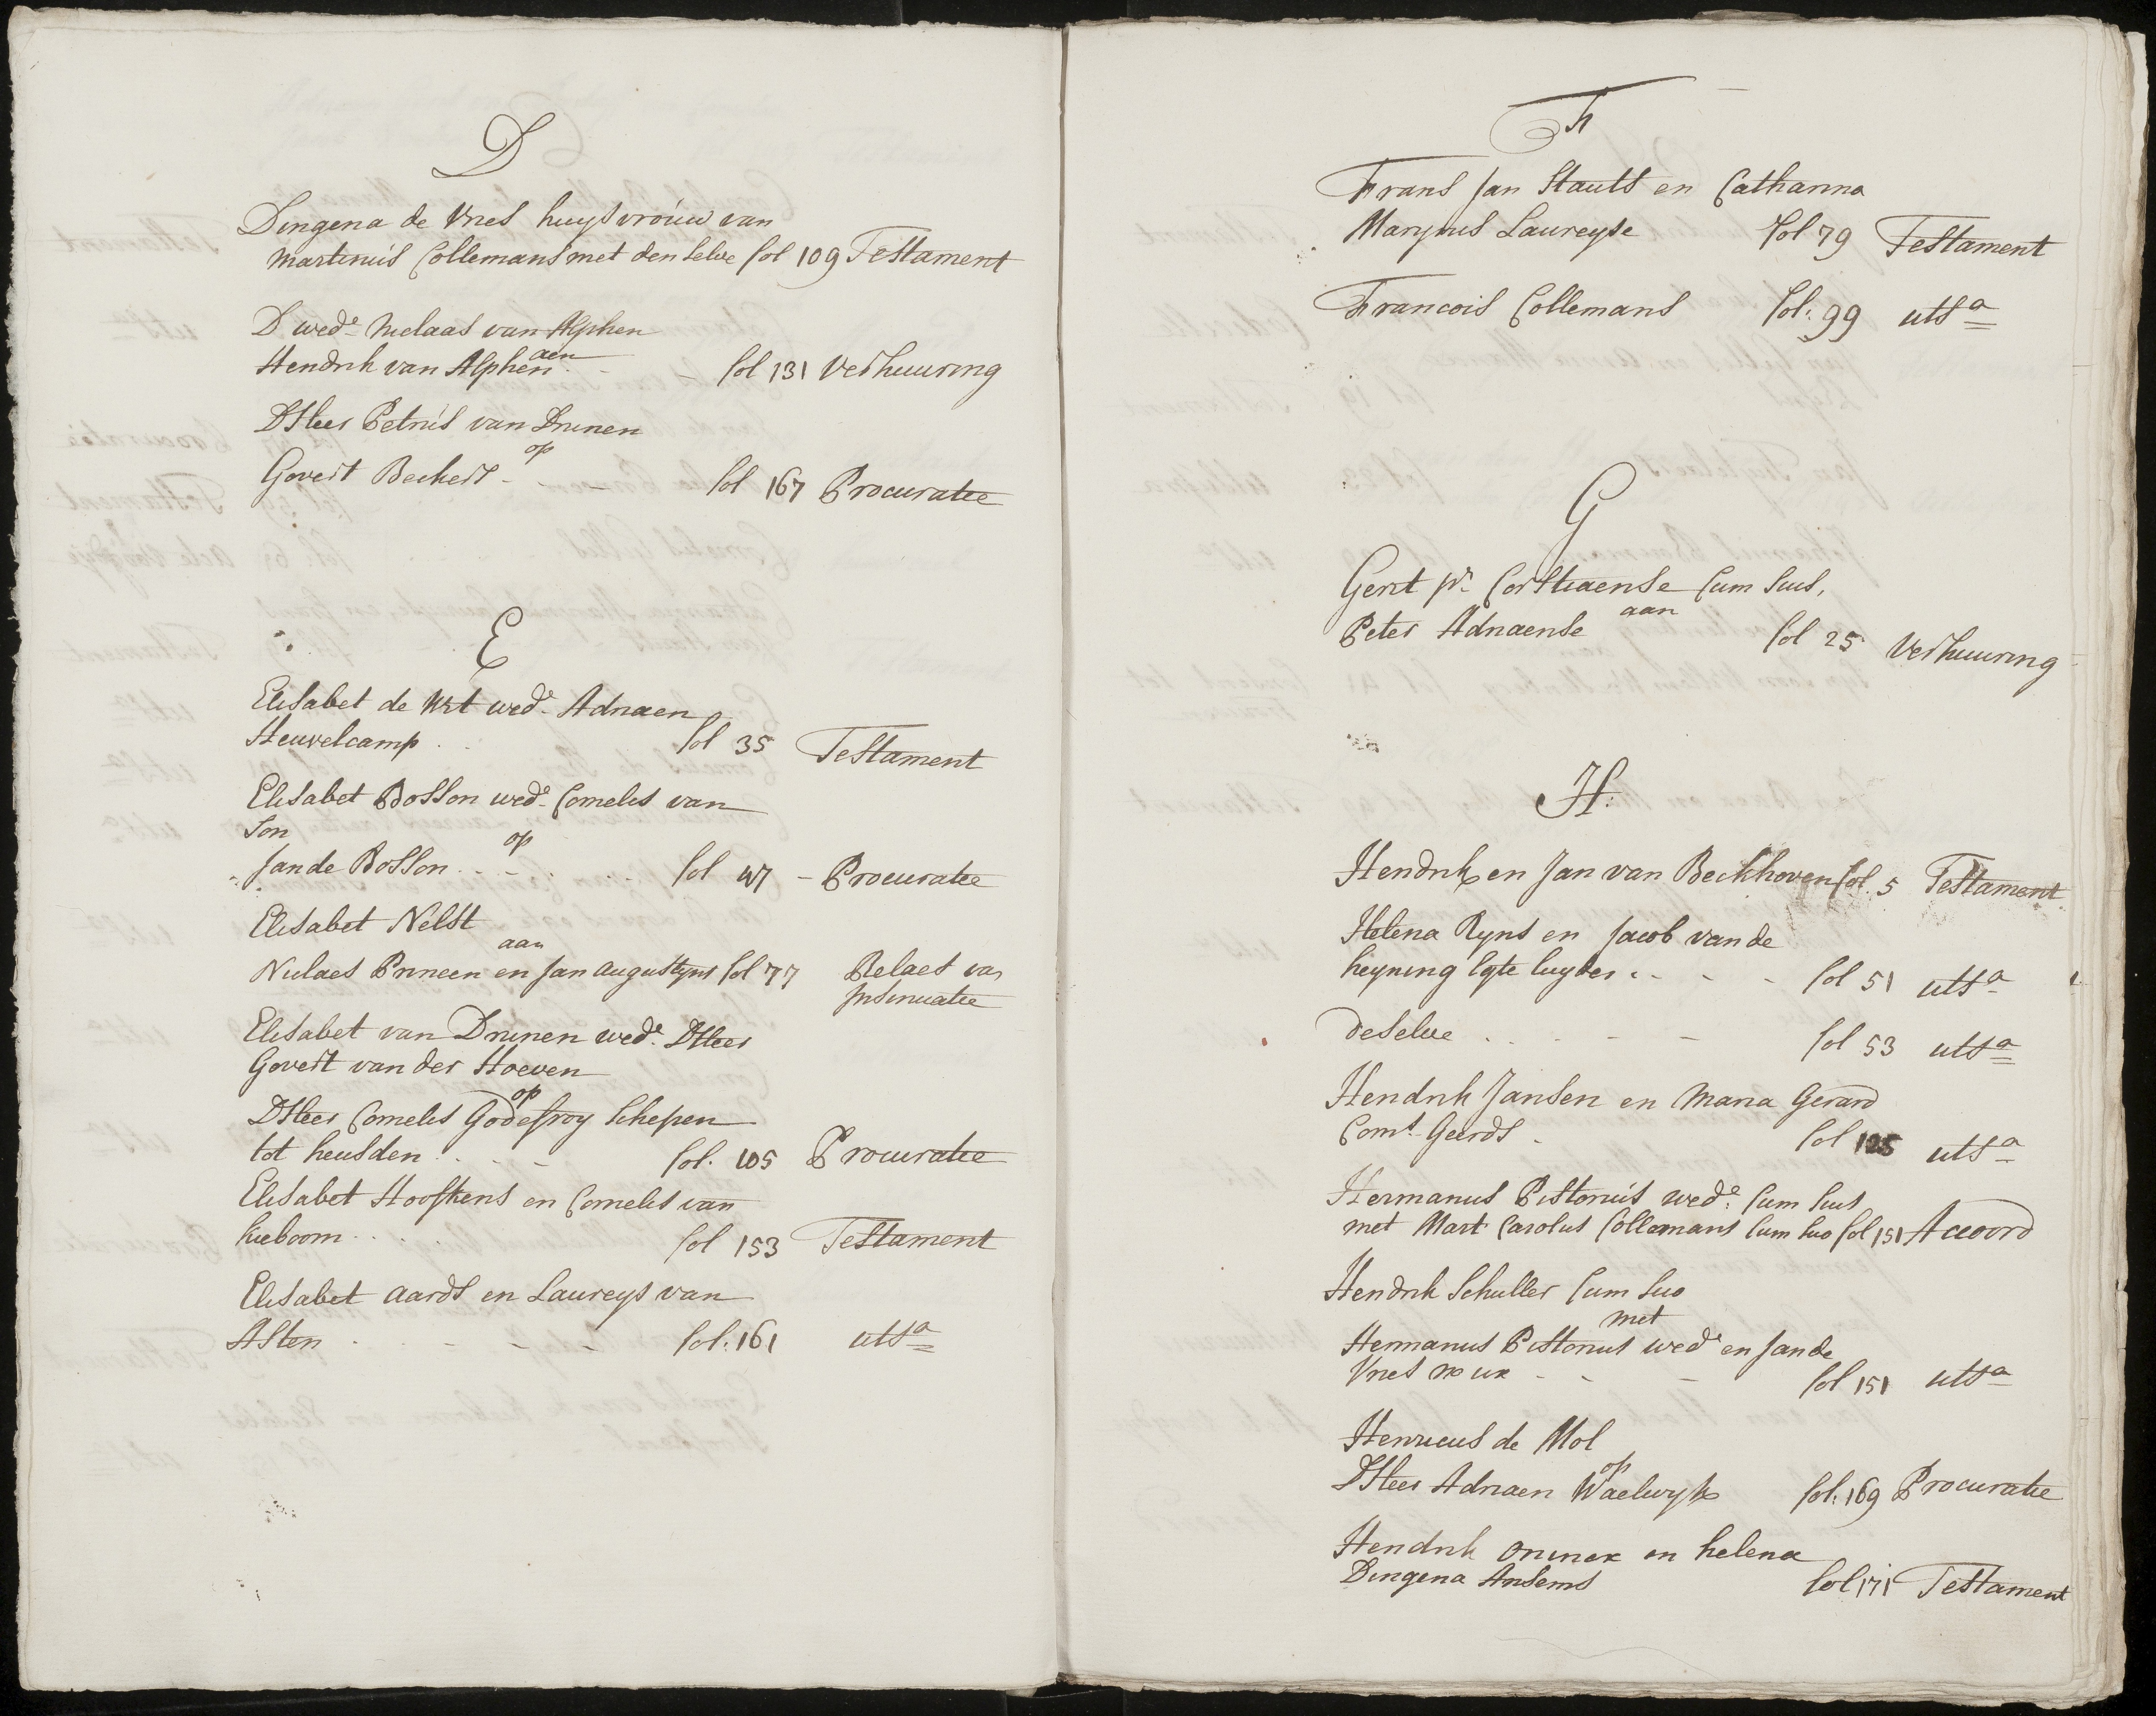 D
Dingena de Vries huysvrouw van
Martinus Collemans met den selve fol 109 Testament
D wede Niclaas van Alphen
aen
Hendrik van Alphen - fol 131 Verhuuring
DHeer Petrus van Drunen
op
Govert Beckers - - fol 167 Procuratie
E
Elisabet de Wit wede Adriaen
Heuvelcamp . . fol 35 Testament
Elisabet Bosson wede Cornelis van
Son
op
Jan de Bosson . . - . . fol 47 - Procuratie
Elisabet Nelst
aan
Niclaes Princen en Jan Augustyns fol 77 Relaes van
Insinuatie
Elisabet van Drunen wede DHeer
Govert van der Hoeven
op
DHeer Cornelis Godefroy schepen
tot heusden . . . - fol. 105 Procuratie
Elisabet Hoofkens en Cornelis van
hieboom . . . fol 153 Testament
Elisabet Aards en Laureys van
Asten . - - - - fol. 161 utsa
F
Frans Jan Stauts en Catharina
Marynus Laureyse fol 79 Testament
Francois Collemans fol: 99 utsa
G
Gerit pr. Corstiaense Cum suis,
aan
Peter Adriaense fol 25 Verhuuring
H:
Hendrik en Jan van Beckhoven fol. 5 Testament
Helena Ryns en Jacob van de
heyning egte luyden . - - - fol 51 utsa
deselve . . - - fol 53 utsa
Hendrik Jansen en Maria Gerard
Corns Geerds . fol 125 utsa
Hermanus Pistorius wede: Cum suis
met Mart Carolus Collemans Cum suo fol 151 Accoord
Hendrik Schuller Cum suo
met
Hermanus Pistorius wede en Jan de
Vries no ux - - - fol 151 utsa
Henricus de Mol
op
DHeer Adriaen Waelwyk fol: 169 Procuratie
Hendrik Onincx en helena
Dingena Ansems fol 171 Testament